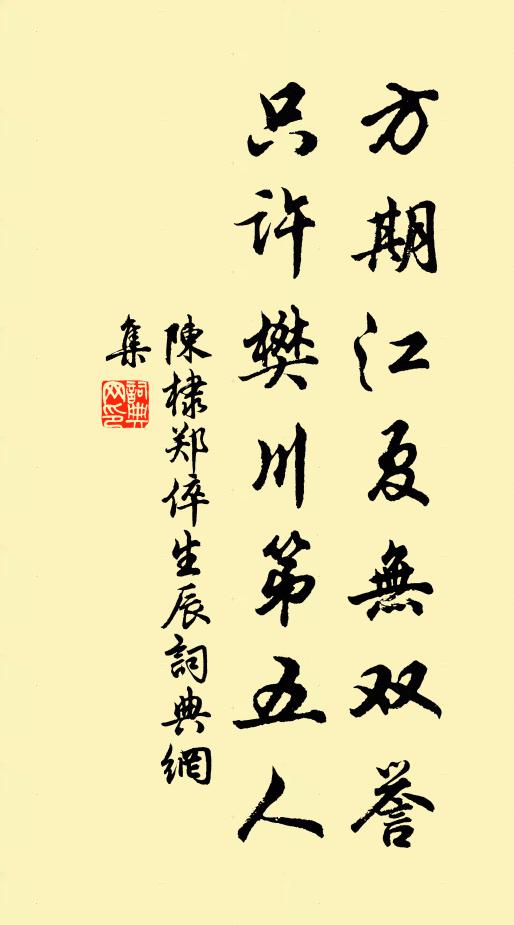 方期江夏無双誉
只許樊川第五人
陳棣郑倅生辰詞典網
集
詞典网印